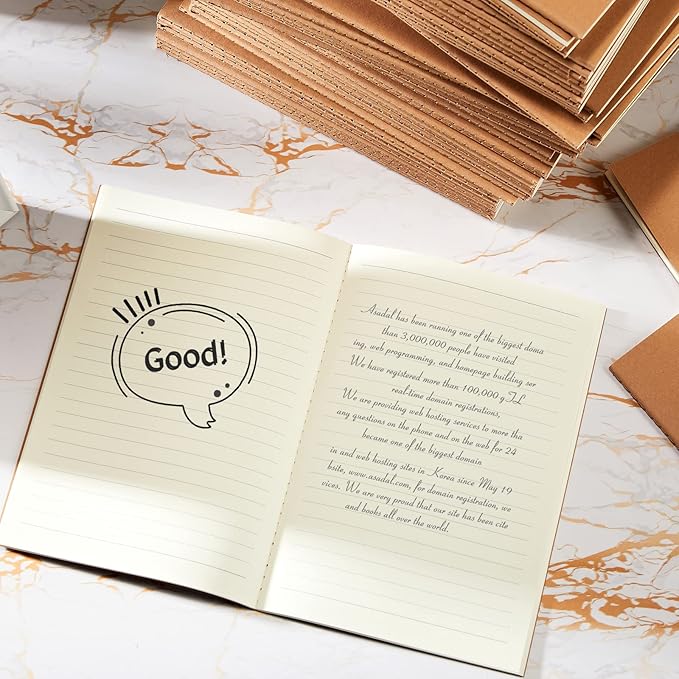 Good!
Asadal has been running one of the biggest doma
than 3,000,000 people have visited
ing, web programming, and homepage building ser
We have registered more than 100,000 gTL
real-time domain registrations,
We are providing web hosting services to more tha
any questions on the phone and on the web for 24
became one of the biggest domain
in and web hosting sites in Korea since May 19
bsite, www.asadal.com, for domain registration, we
vices. We are very proud that our site has been cite
and books all over the world.